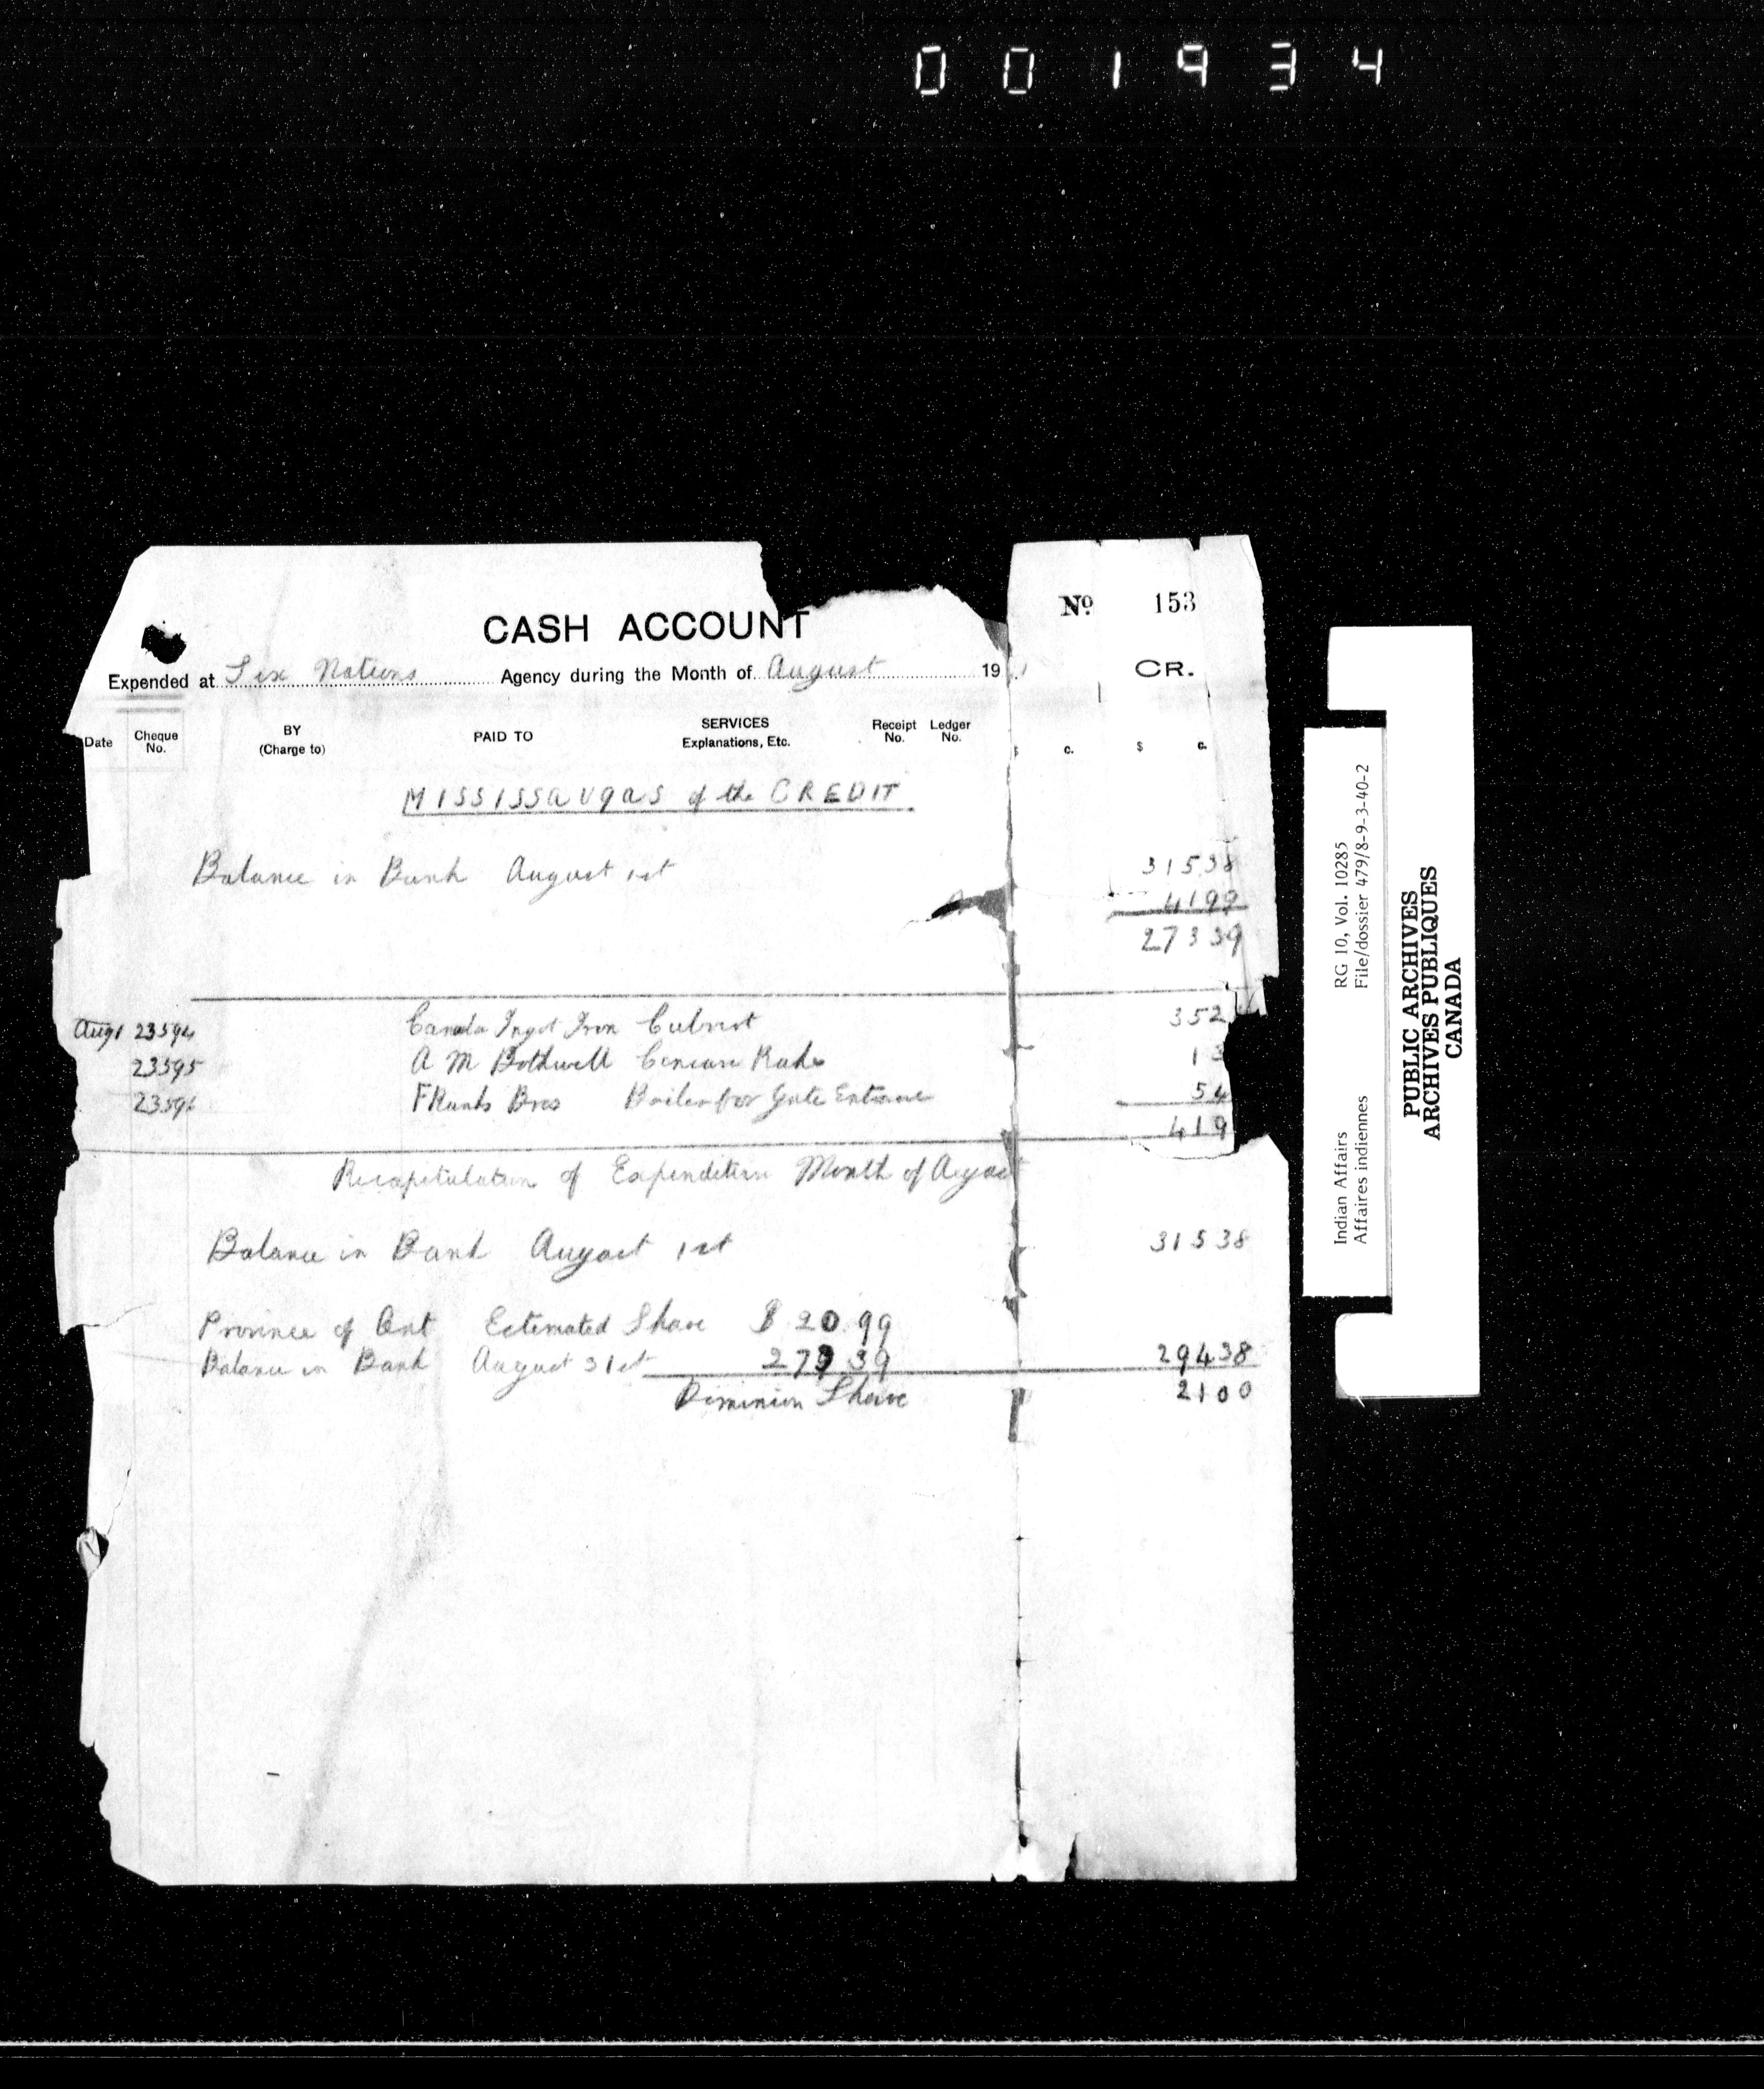 0 0 1 9 3 4
No 153
CASH ACCOUNT
Expended at Six Nations Agency during the Month of August 19 CR.
Date Cheque No. BY (Charge to) PAID TO SERVICES Explanations, Etc. Receipt No. Ledger No. $ c. $ c.
MISSISSAUGAS of the CREDIT
Balance in Bank August 1st 315 38
41 99
273 39
Aug 1 23594 Canada Ingot Iron Culvert 352
23595 A M Bothwell 13
2359 Bros for Gate Entrance 54
419
Recapitulation of Expenditure Month of August
Balance in Bank August 1st 315 38
Province of Ont Estimated Share $ 20.99
Balance in Bank August 31st 273 39 294 38
Dominion Share 21 00
Indian Affairs RG 10, Vol. 10285
Affaires indiennes File/dossier 479/8-9-3-40-2
PUBLIC ARCHIVES
ARCHIVES PUBLIQUES
CANADA